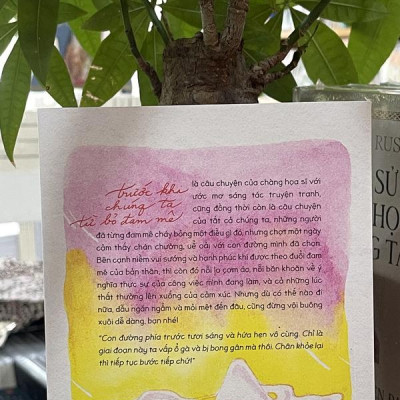 trước khi
chúng ta
từ bỏ đam mê
là câu chuyện của chàng họa sĩ với
ước mơ sáng tác truyện tranh,
cũng đồng thời còn là câu chuyện
của tất cả chúng ta, những người
đã từng đam mê cháy bỏng một điều gì đó, nhưng chợt một ngày
cảm thấy chán chường, uể oải với con đường mình đã chọn.
Bên cạnh niềm vui sướng và hạnh phúc khi được theo đuổi đam
mê của bản thân, thì còn đó nỗi lo cơm áo, nỗi băn khoăn về ý
nghĩa thực sự của công việc mình đang làm, và cả những lúc
thất thường lên xuống của cảm xúc. Nhưng dù có thế nào đi
nữa, dẫu ngán ngẩm và mỏi mệt đến đâu, cũng đừng vội buông
xuôi dễ dàng, bạn nhé!
"Con đường phía trước tươi sáng và hứa hẹn vô cùng. Chỉ là
giai đoạn này ta vấp ổ gà và bị bong gân mà thôi. Chân khỏe lại
thì tiếp tục bước tiếp chứ!"
RUS
SỬ